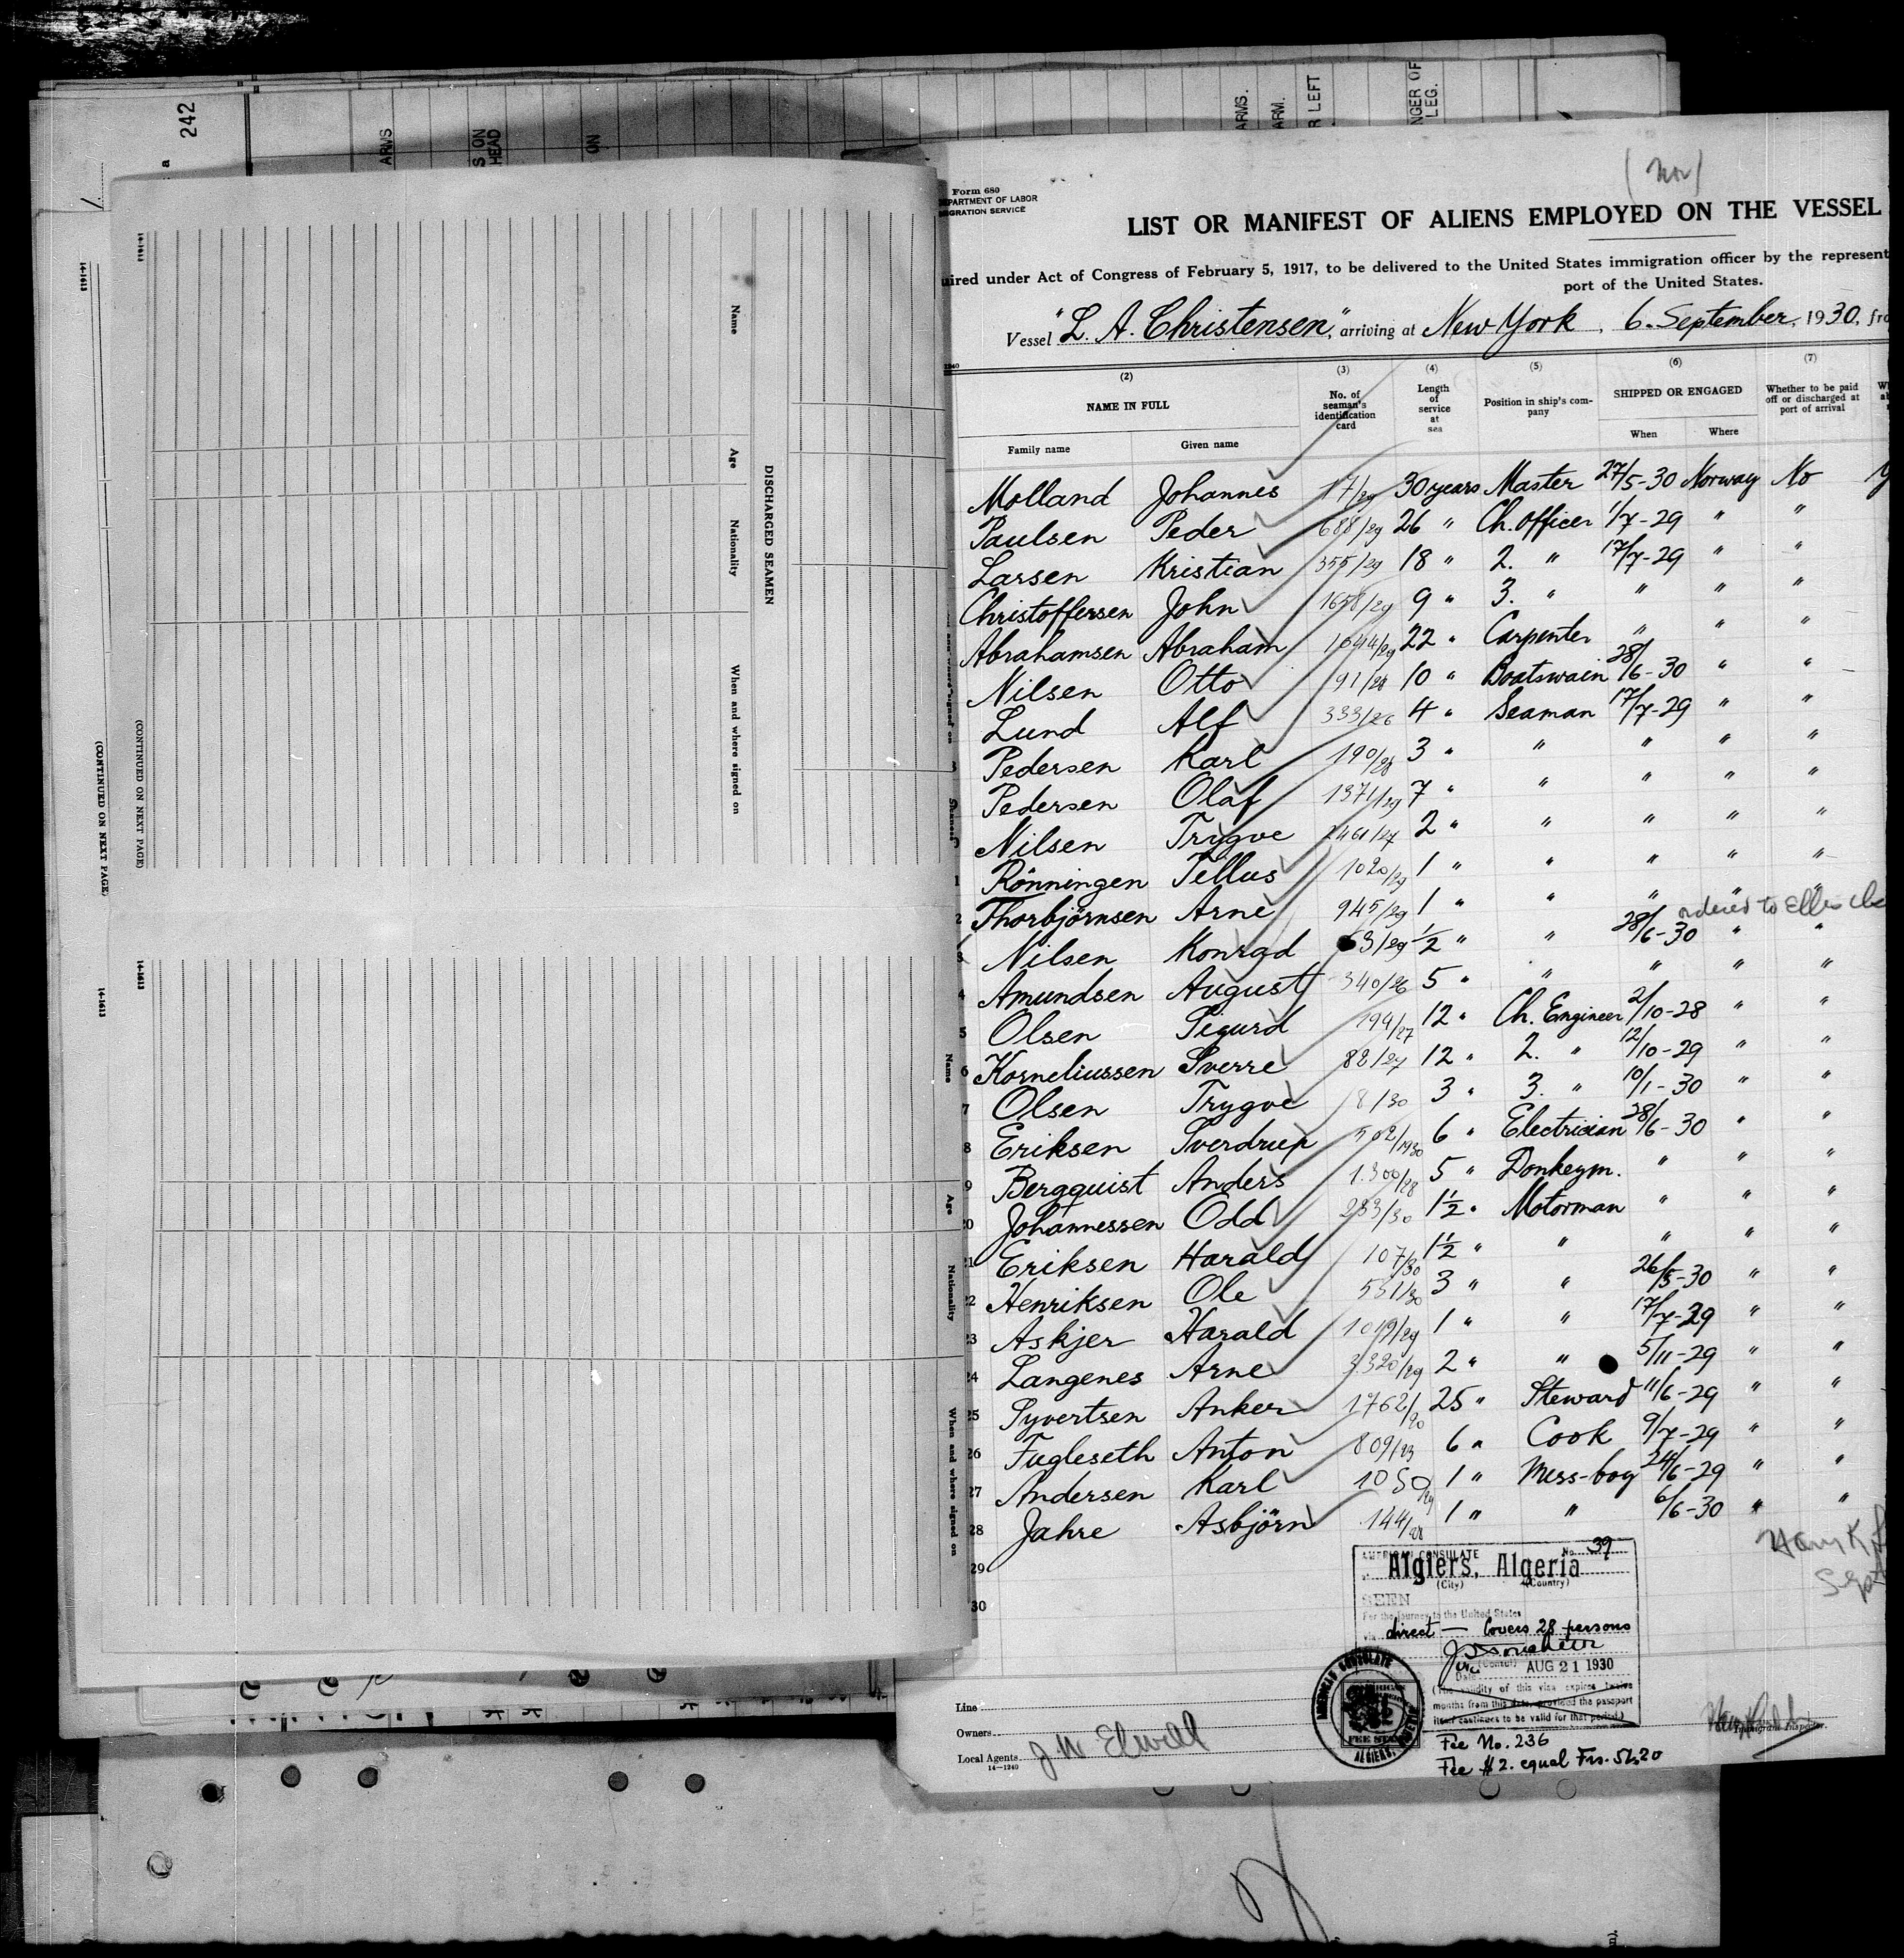 242
ARMS
S ON
HEAD
ON
ARMS.
ARM.
R LEFT
NGER OF
LEG.
14-1613
(CONTINUED ON NEXT PAGE)
14-1613
14-1613
(CONTINUED ON NEXT PAGE)
14-1613
DISCHARGED SEAMEN
Name
Age
Nationality
When and where signed on
Name
Age
Nationality
When and where signed on
(Nor)
Form 680
DEPARTMENT OF LABOR
MIGRATION SERVICE
LIST OR MANIFEST OF ALIENS EMPLOYED ON THE VESSEL
uired under Act of Congress of February 5, 1917, to be delivered to the United States immigration officer by the represent
port of the United States.
Vessel "L. A. Christensen", arriving at New York, 6. September, 1930, fro
(2) (3) (4) (5) (6) (7)
NAME IN FULL No. of seaman's identification card Length of service at sea Position in ship's company SHIPPED OR ENGAGED Whether to be paid off or discharged at port of arrival
Family name Given name When Where
Molland Johannes 17/29 30 years Master 27/5-30 Norway No
Paulsen Peder 688/29 26 " Ch. Officer 1/7-29 " "
Larsen Kristian 355/29 18 " 2. " 17/7-29 " "
Christoffersen John 1658/29 9 " 3. " " " "
Abrahamsen Abraham 1044/29 22 " Carpenter " " "
Nilsen Otto 91/28 10 " Boatswain 28/6-30 " "
Lund Alf 333/26 4 " Seaman 17/7-29 " "
Pedersen Karl 190/28 3 " " " " "
Pedersen Olaf 1371/29 7 " " " " "
Nilsen Trygve 2461/27 2 " " " " "
1 Rönningen Tellus 1020/29 1 " " " " "
2 Thorbjörnsen Arne 945/29 1 " " " " "
ordered to Ellis
3 Nilsen Konrad 63/29 1/2 " " 28/6-30 " "
4 Amundsen August 340/26 5 " " " " "
5 Olsen Sigurd 194/27 12 " Ch. Engineer 2/10-28 " "
6 Korneliussen Sverre 82/27 12 " 2. " 12/10-29 " "
7 Olsen Trygve 8/30 3 " 3. " 10/1-30 " "
8 Eriksen Sverdrup 502/1930 6 " Electrician 28/6-30 " "
9 Bergquist Anders 1300/28 5 " Donkeym. " " "
20 Johannessen Odd 283/30 1 1/2 " Motorman " " "
21 Eriksen Harald 107/30 1 1/2 " " " " "
22 Henriksen Ole 551/30 3 " " 26/5-30 " "
23 Askjer Harald 1019/29 1 " " 17/7-29 " "
24 Langenes Arne 3320/29 2 " " 5/11-29 " "
25 Syvertsen Anker 1762/20 25 " Steward 11/6-29 " "
26 Fugleseth Anton 809/23 6 " Cook 9/7-29 " "
27 Andersen Karl 1050/29 1 " Mess-boy 24/6-29 " "
28 Jahre Asbjörn 144/28 1 " " 6/6-30 " "
29
30
AMERICAN CONSULATE No. 39
Algiers, Algeria
(City) (Country)
SEEN
For the journey to the United States
via direct — Covers 28 persons
(Consul)
Date AUG 21 1930
(The validity of this visa expires twelve
months from this date, provided the passport
itself continues to be valid for that period.)
Fee No. 236
Fee $2. equal Frs. 51,20
AMERICAN CONSULATE
ALGIERS, ALGERIA
FEE STAMP
Line
Owners
Local Agents J. W. Elwell
14—1240
Immigrant Inspector.